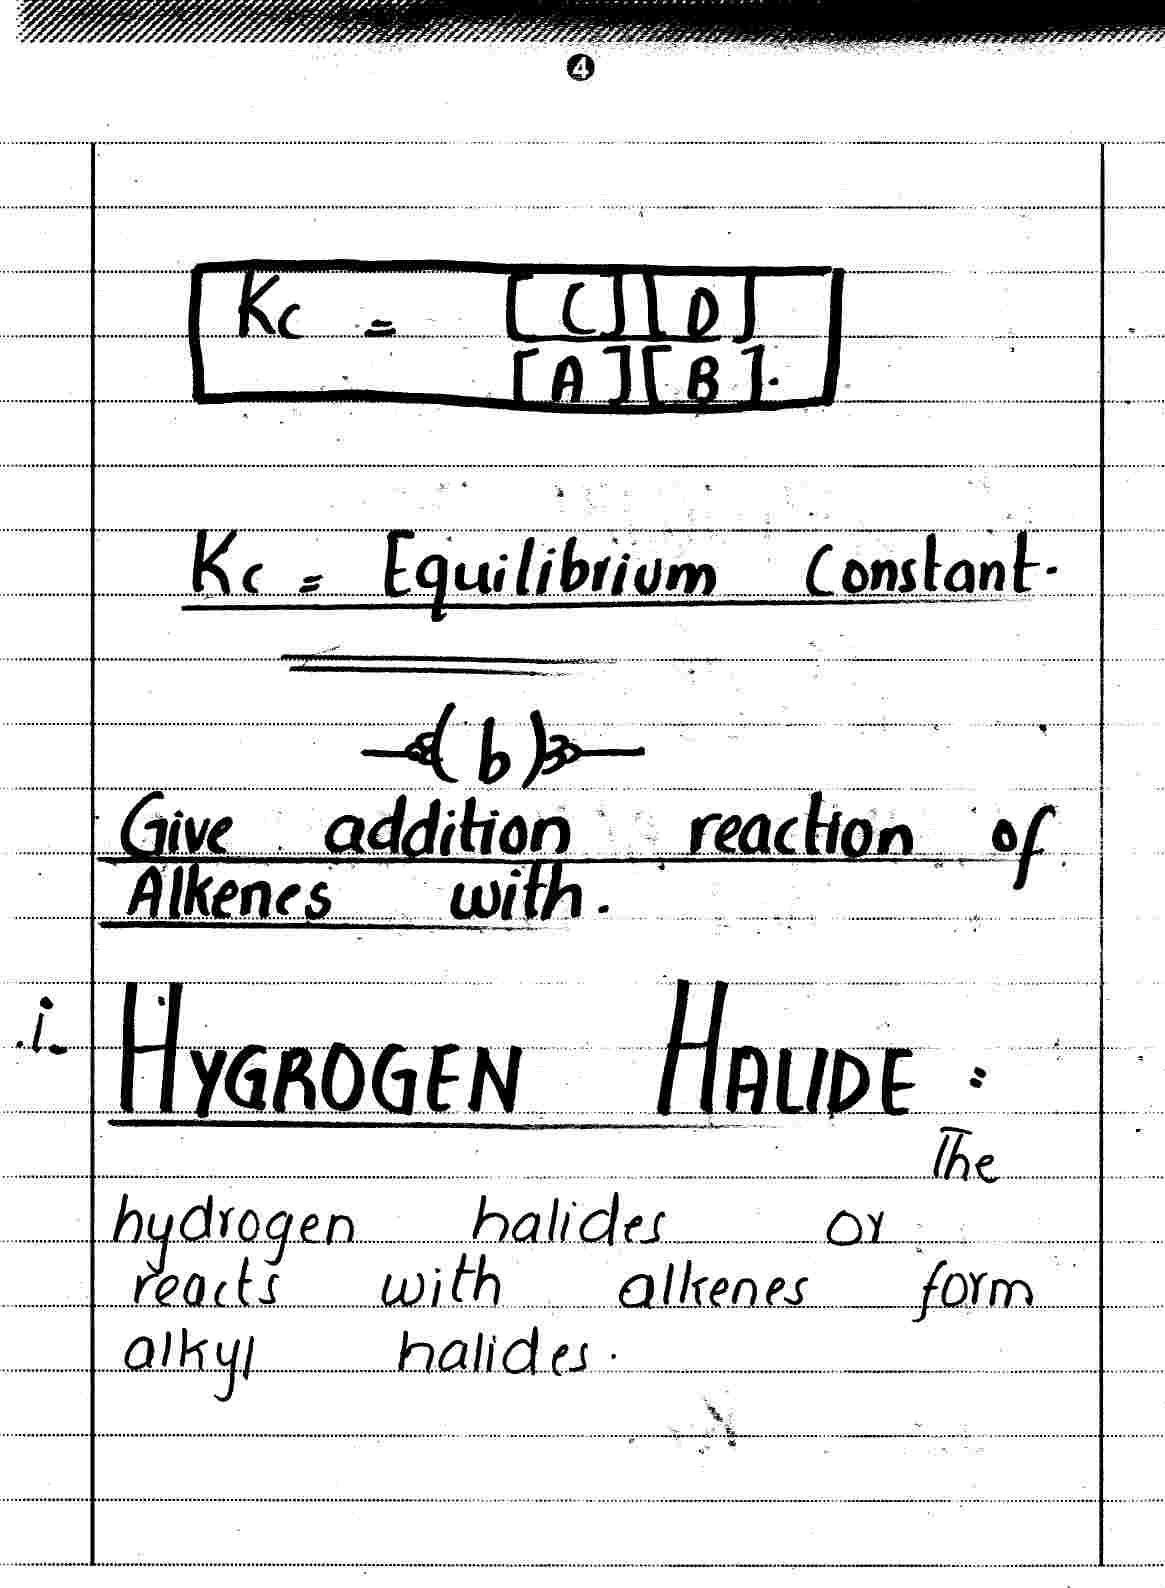 4
Kc = [C][D]
[A][B].
Kc = Equilibrium Constant.
(b)
Give addition reaction of
Alkenes with.
i. HYGROGEN HALIDE :
The
hydrogen halides or
reacts with alkenes form
alkyl halides.